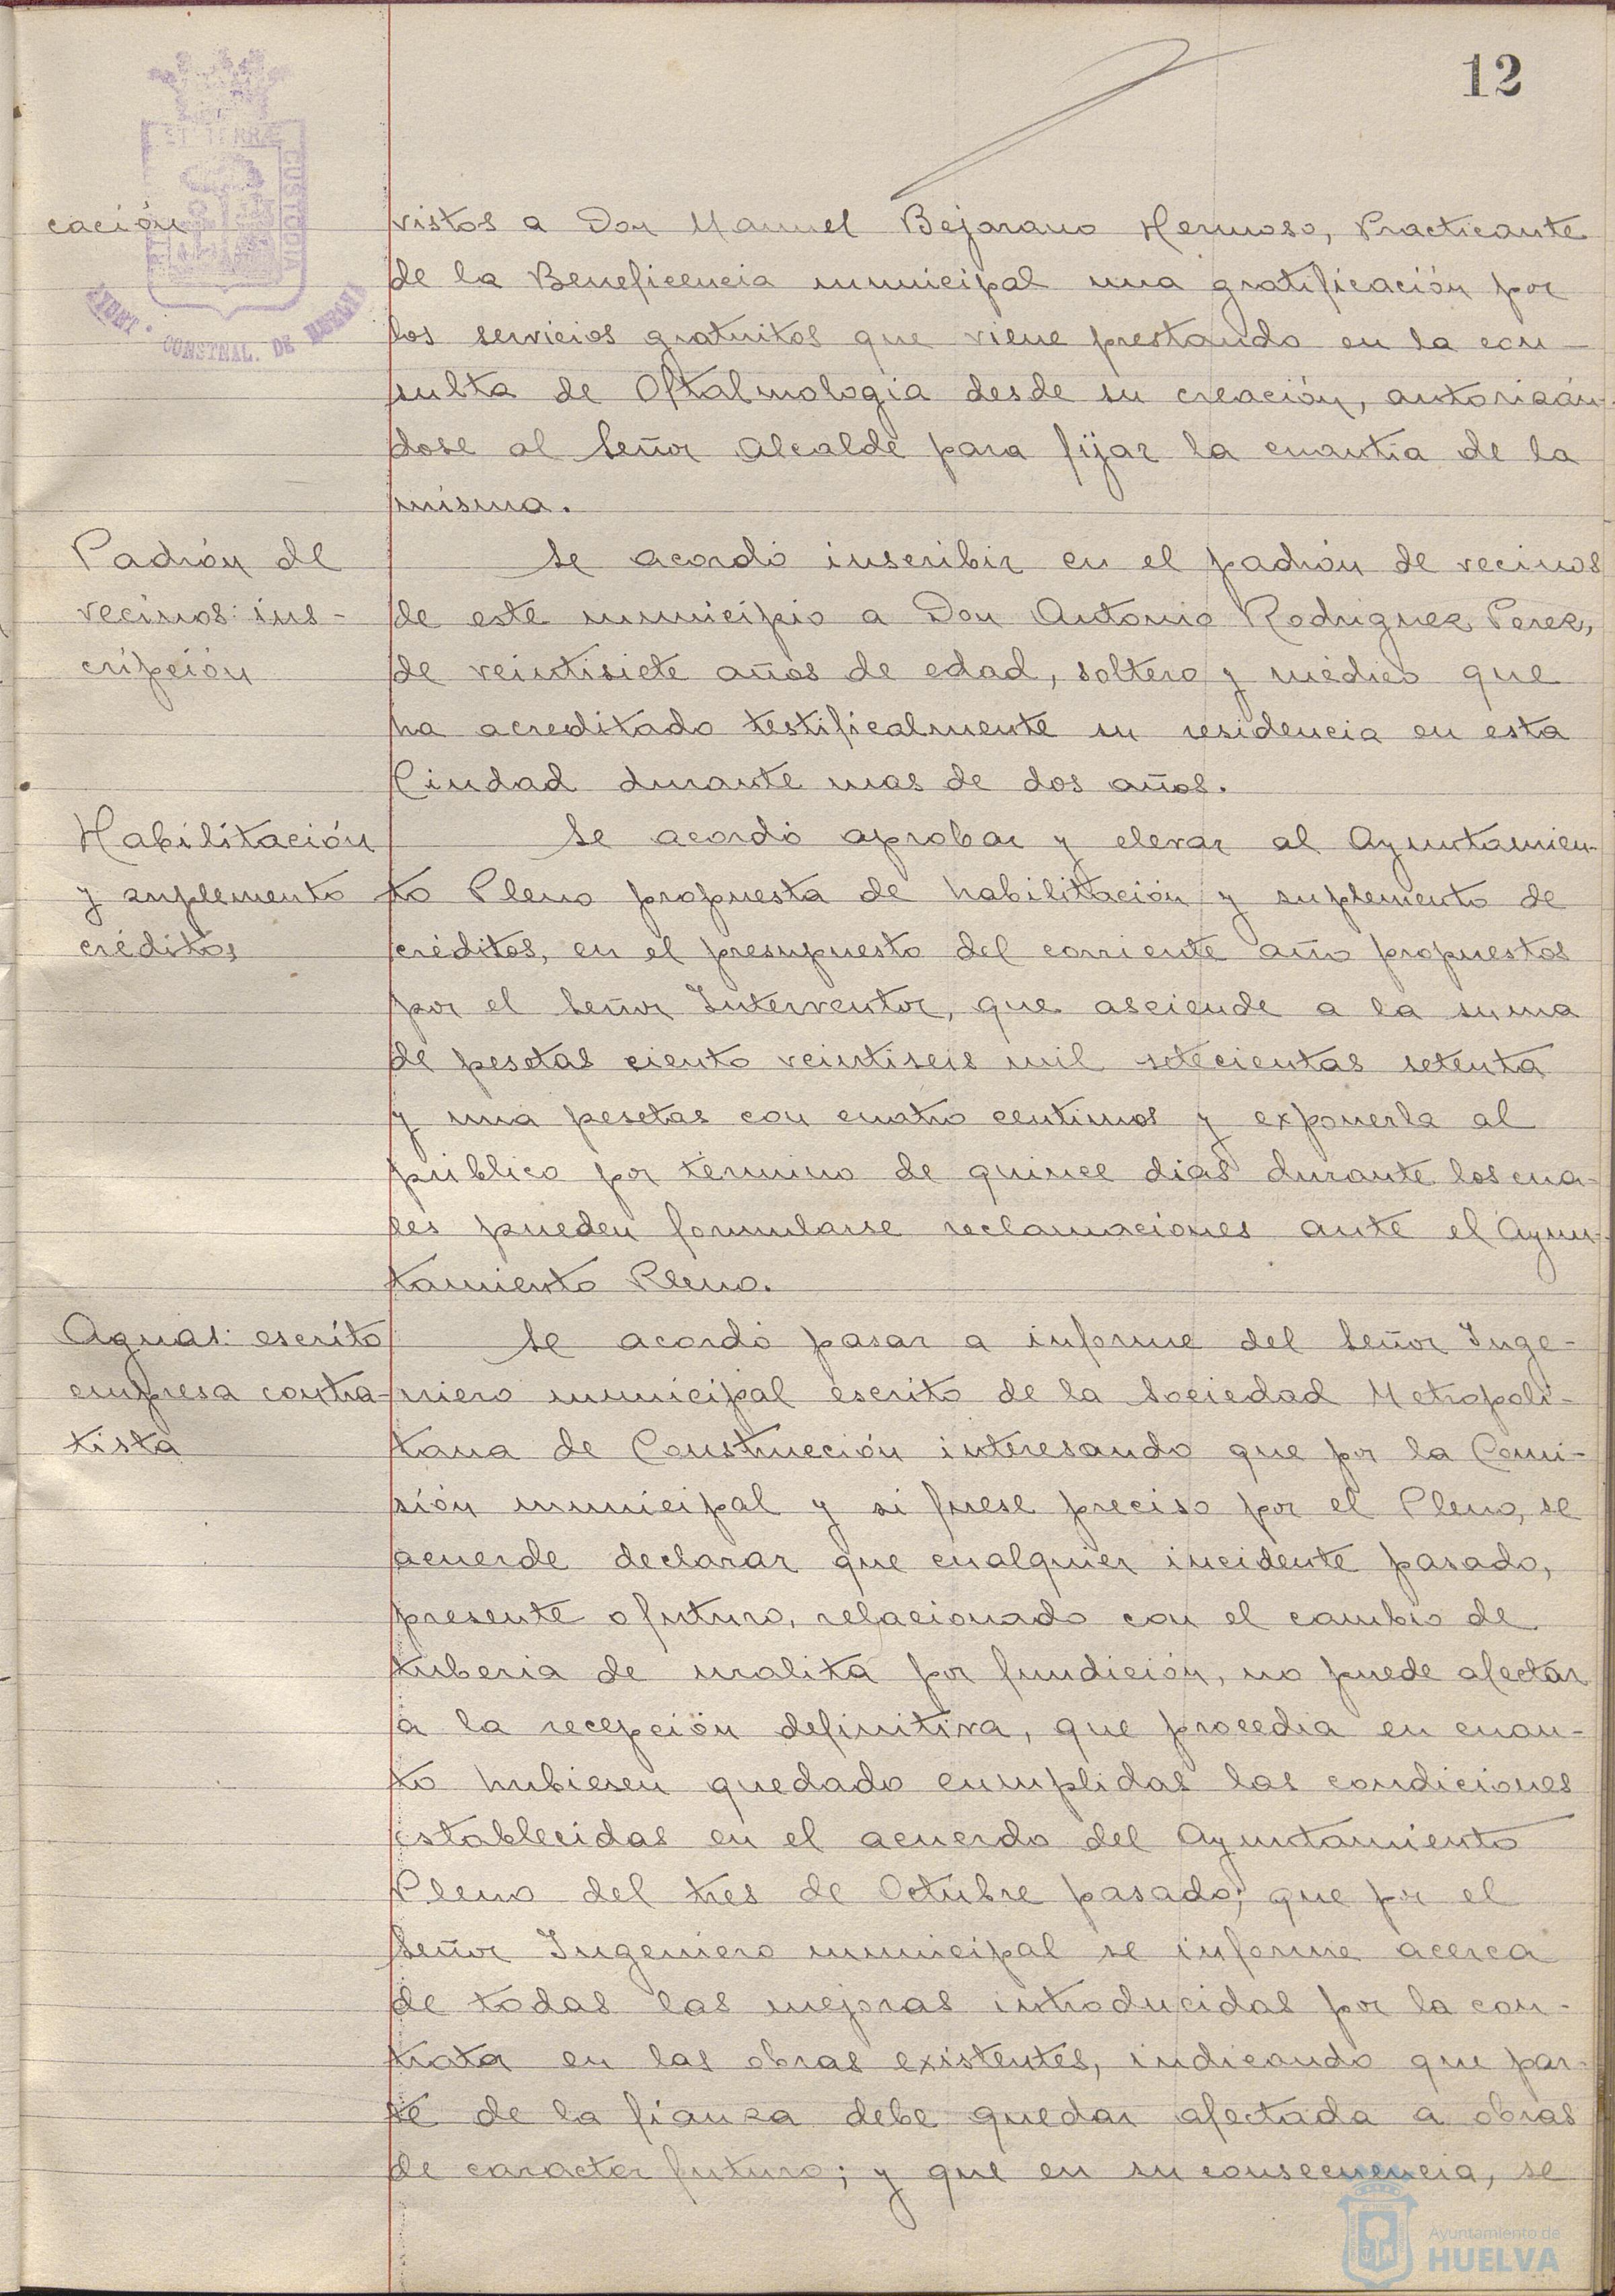 12
cación
vistos a Don Manuel Bejarano Hermoso, Practicante
de la Beneficencia municipal una gratificación por
los servicios gratuitos que viene prestando en la con-
sulta de Oftalmología desde su creación, autorizán-
dose al Señor Alcalde para fijar la cuantía de la
misma.
Padrón de
vecinos: ins-
cripción
Se acordó inscribir en el padrón de vecinos
de este municipio a Don Antonio Rodriguez Perez,
de veintisiete años de edad, soltero y médico que
ha acreditado testificalmente su residencia en esta
Ciudad durante mas de dos años.
Habilitación
y suplemento
créditos
Se acordó aprobar y elevar al Ayuntamien-
to Pleno propuesta de habilitación y suplemento de
créditos, en el presupuesto del corriente año propuestos
por el Señor Interventor, que asciende a la suma
de pesetas ciento veintiseis mil setecientas setenta
y una pesetas con cuatro centimos y exponerla al
público por término de quince dias durante los cua-
les pueden formularse reclamaciones ante el Ayun-
tamiento Pleno.
Aguas: escrito
empresa contra-
tista
Se acordó pasar a informe del Señor Inge-
niero municipal escrito de la Sociedad Metropoli-
tana de Construcción interesando que por la Comi-
sión municipal y si fuese preciso por el Pleno, se
acuerde declarar que cualquier incidente pasado,
presente o futuro, relacionado con el cambio de
tuberia de uralita por fundición, no puede afectar
a la recepción definitiva, que procedia en cuan-
to hubiesen quedado cumplidas las condiciones
establecidas en el acuerdo del Ayuntamiento
Pleno del tres de Octubre pasado; que por el
Señor Ingeniero municipal se informe acerca
de todas las mejoras introducidas por la con-
trata en las obras existentes, indicando que par-
te de la fianza debe quedar afectada a obras
de caracter futuro; y que en su consecuencia, se
ET TERRÆ
CUSTODIA
CONSTNAL. DE
Ayuntamiento de
HUELVA